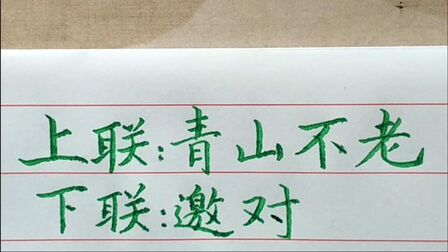 上联:青山不老
下联:邀对